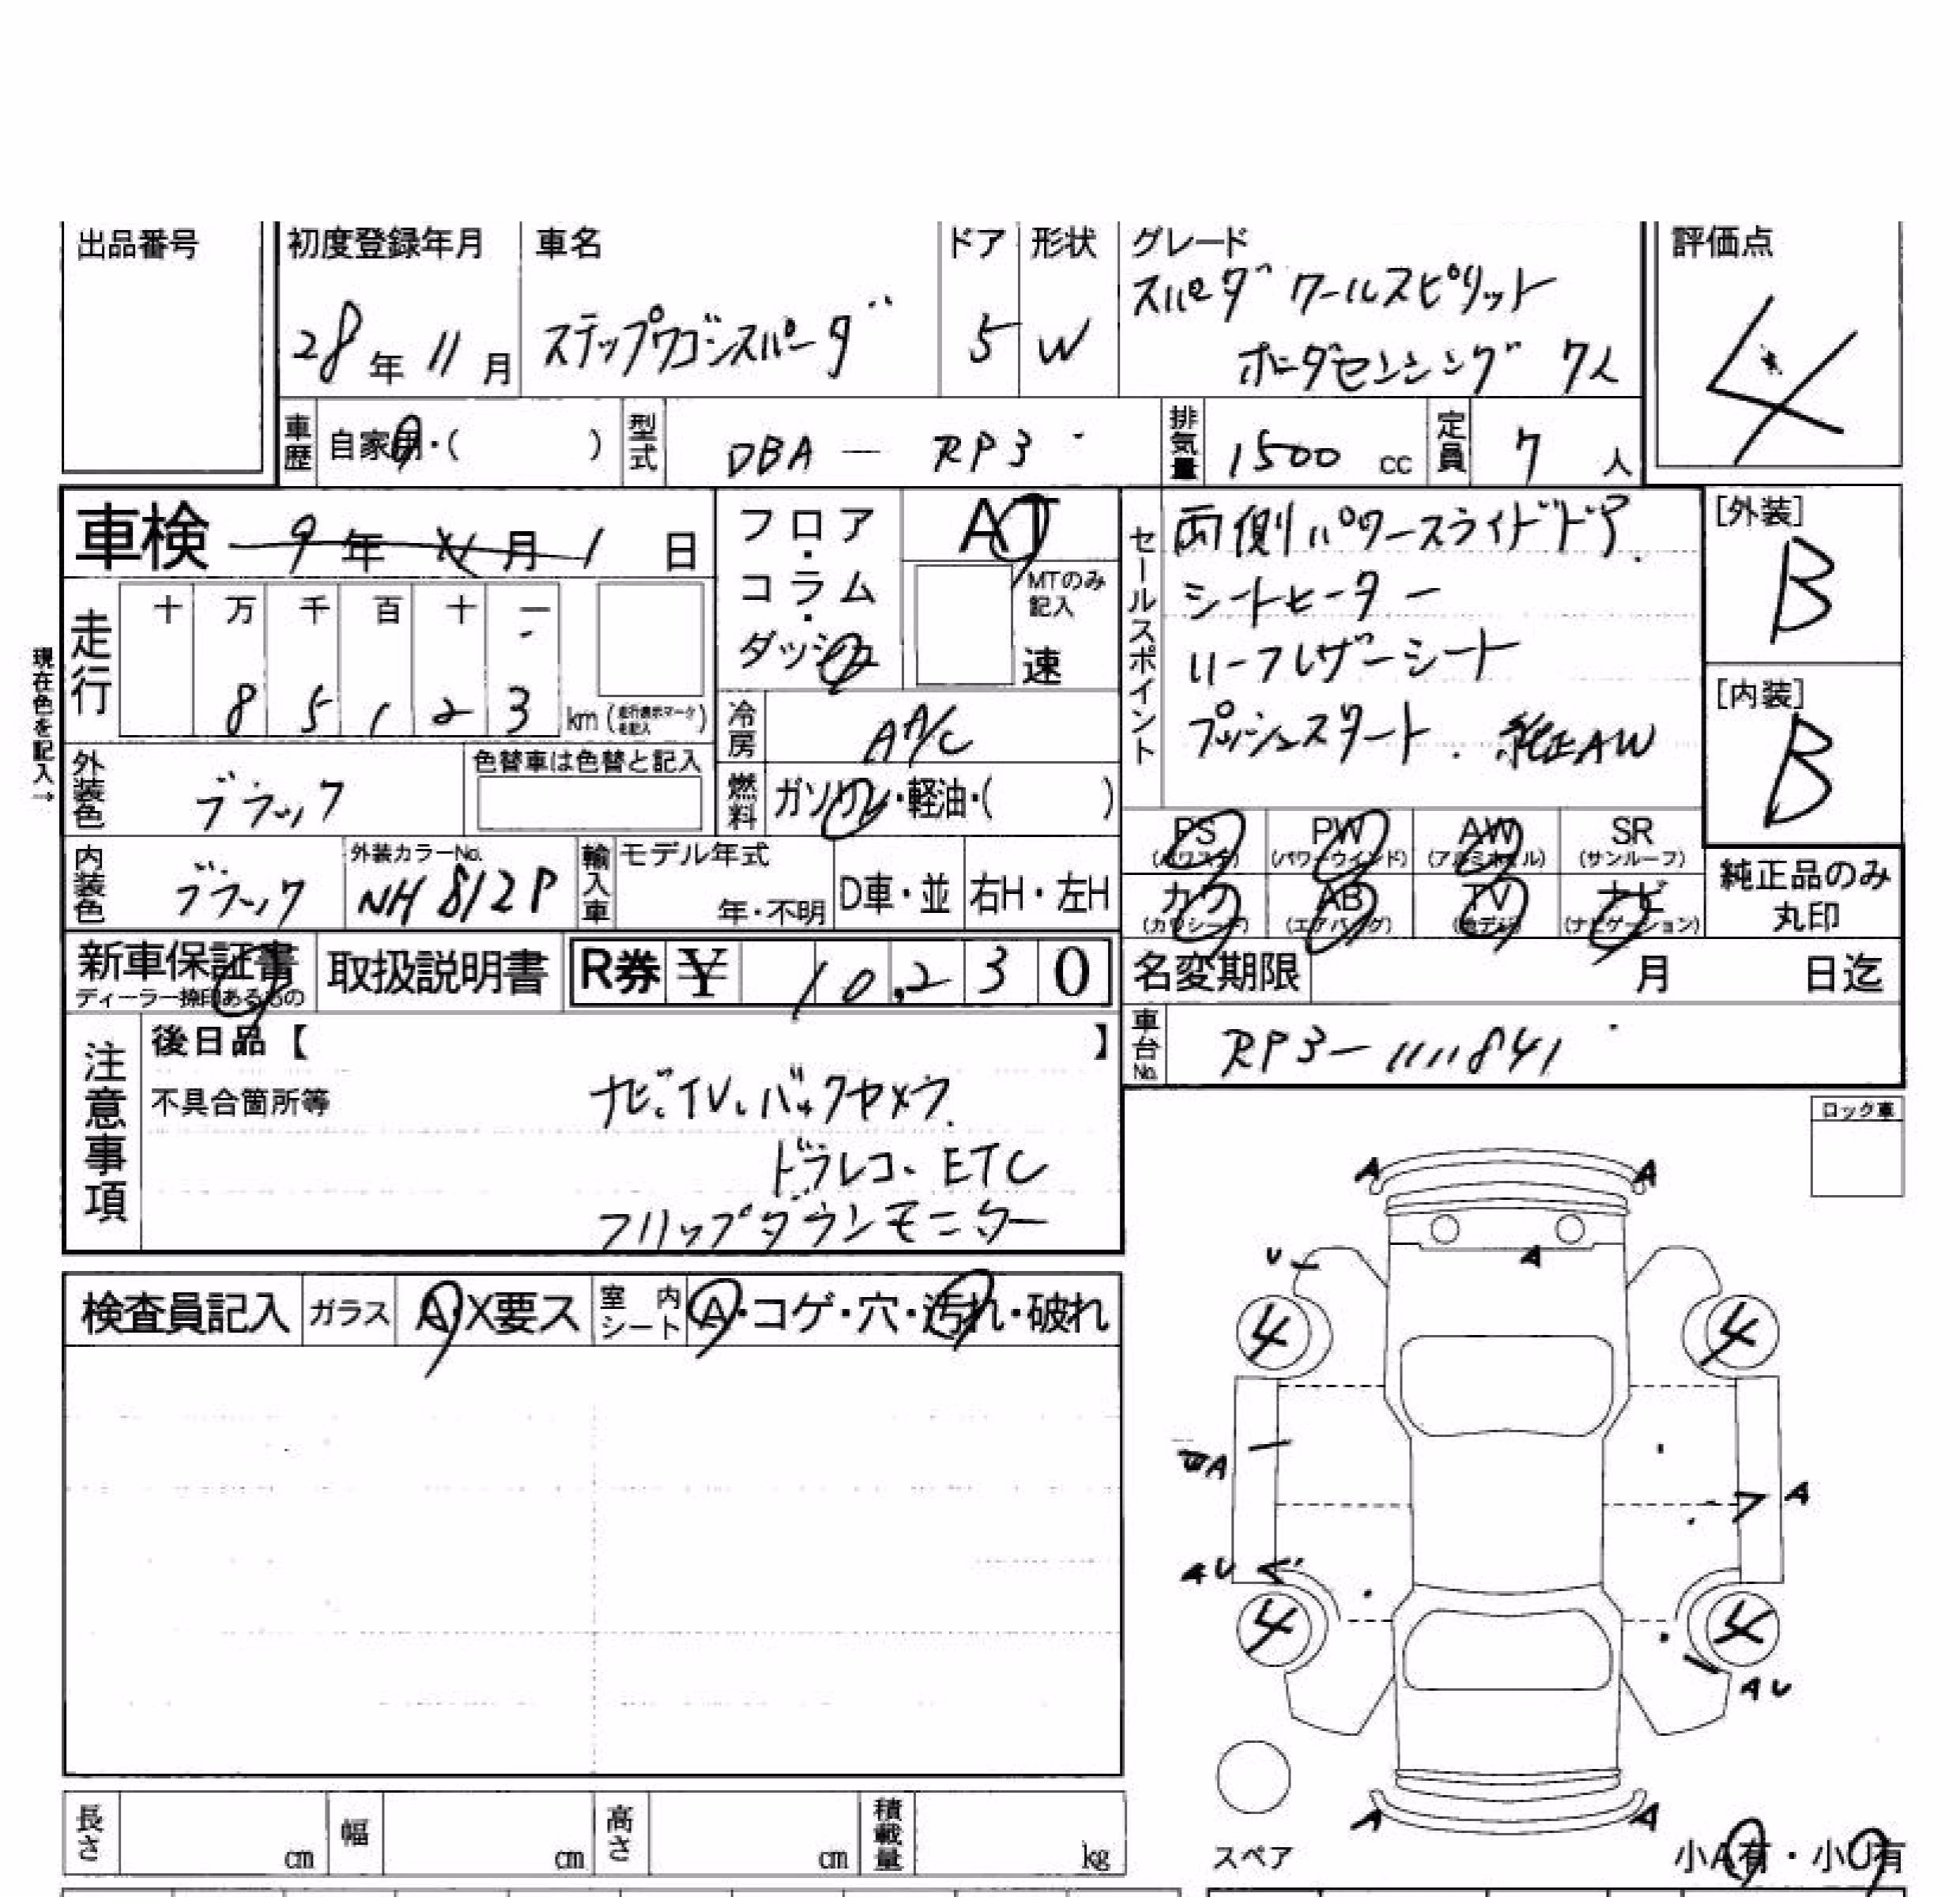 出品番号
初度登録年月
28年11月
車名
ステップワゴンスパーダ
ドア
5
形状
W
グレード
スパーダ クールスピリット
ホンダセンシング 7人
評価点
4
車歴 自家用・( )
型式 DBA - RP3
排気量 1500 cc
定員 7 人
車検 9年 月1日
走行
十 万 千 百 十 一
8 5 1 2 3 km (走行表示マークを記入)
現在色を記入→
フロア・コラム・ダッシュ
AT
MTのみ記入
速
冷房 AA/C
燃料 ガソリン・軽油・( )
外装色 ブラック
色替車は色替と記入
内装色 ブラック
外装カラーNo.
NH812P
輸入車
モデル年式
年・不明
D車・並
右H・左H
セールスポイント
両側パワースライドドア.
シートヒーター
ハーフレザーシート
プッシュスタート. 純正AW
[外装]
B
[内装]
B
PS (パワステ)
PW (パワーウインド)
AW (アルミホイル)
SR (サンルーフ)
カワ (カワシート)
AB (エアバッグ)
TV (地デジ)
ナビ (ナビゲーション)
純正品のみ丸印
新車保証書
ディーラー捺印あるもの
取扱説明書
R券 ¥ 10,230
名変期限 月 日迄
車台No. RP3-1111841
注意事項
後日品【 】
不具合箇所等
ナビ、TV、バックカメラ.
ドラレコ、ETC
フリップダウンモニター
ロック車
検査員記入
ガラス A・X要ス
室内シート A・コゲ・穴・汚れ・破れ
A A
U A
4 4
A
A
AU
4 4
AU
A A
スペア
小A有・小U有
長さ cm
幅 cm
高さ cm
積載量 kg